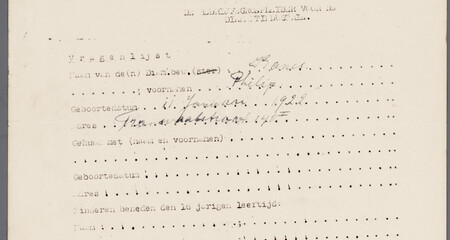 VOOR DE
Vragenlijst
Naam van de(n) Dienstbew.(ster)
; voornamen Philip
Geboortedatum 11 Januari 1922
Adres
Gehuwd met (naam en voornamen)
Geboortedatum
Adres
Kinderen beneden den 16 jarigen leeftijd:
Naam